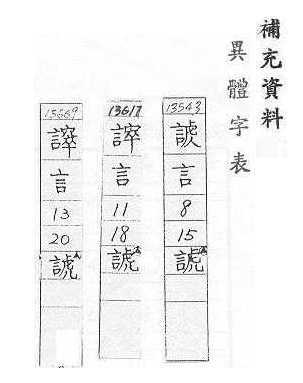 補充資料
異體字表
13543
言
8
15
諕
13617
言
11
18
諕
13669
言
13
20
諕